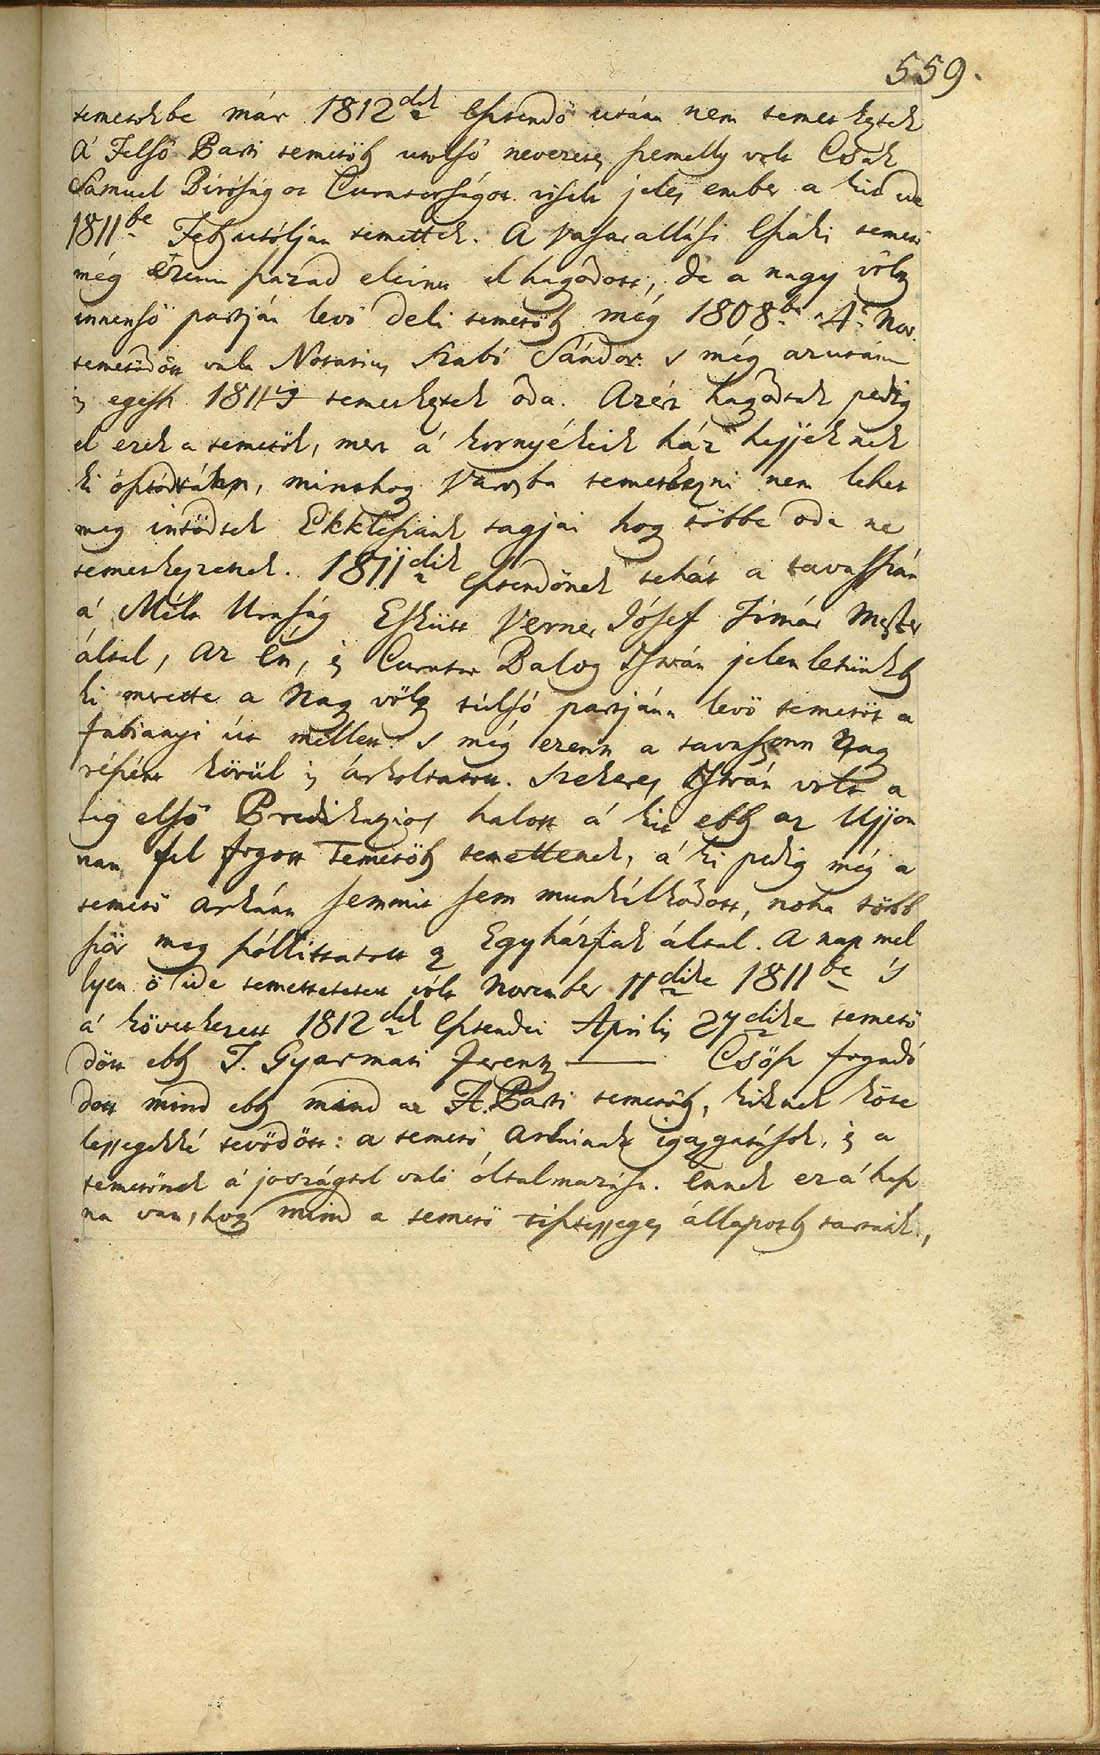 559.
temetokbe már 1812dik Esztendöután nem temetkeztek
A' Felsö Parti temetöb utolsó nevezetes személly volt Csák
Sámuel Bíróságot Curatorságot viselt jeles ember a' kit
1811be Feb utólján temettek. A Vásárállási Északi temetö
még ezenn század eleinn elhagódott, de a nagy völgy
innensö partján levö deli temetöb még 1808be 4 Nov.
temetödött vala Notarius Szabó Sándor. s még azután
is egész 1811ig temetkeztek óda. Azért hagódtak pedig
el ezek a temetök, mert a' környékeik ház hejjeknek
ki osztódtak, minthogy Városba temetkezni nem lehet
meg intödtek Ekklésiánk tagjai hogy többé oda ne
temetkezzenek. 1811dik Esztendönek tehát a tavasszán
a' Mélt Uraság Esküdt Verner Jósef Tímár Mester
által, az én, és Curator Balog István jelenlétünkb
ki mérette a Nagy völgy túlsó partjánn levö temetöt a
Fabianyi út mellett s még ezenn a tavaszonn Nagy
részént körül is árkoltatott. Szekeres István volt a
leg elsö Predikaziós halott a' kit ebb az Ujjon
nan fel fogott Temetöb temettenek, a' ki pedig még a
temetö árkánn semmit sem munkálkodott, noha több
ször meg szóllittatott Egyházfiak által. A nap mel
lyen ö ide temettetett volt November 11dike 1811be 's
a' következett 1812dik Esztendei Aprilis 27dike temetö
dött ebb T. Gyarmati Ferentz — Csösz fogadó
dott mind ebb mind az F. Parti temetöb, kiknek köte
lességekké tevödött: a temetö árkainak igazgatások, és a
temetönek a' jószágtol való óltalmazása. Ennek ez a' hasz
na van, hogy mind a temetö tisztességes állapotb tartatik,